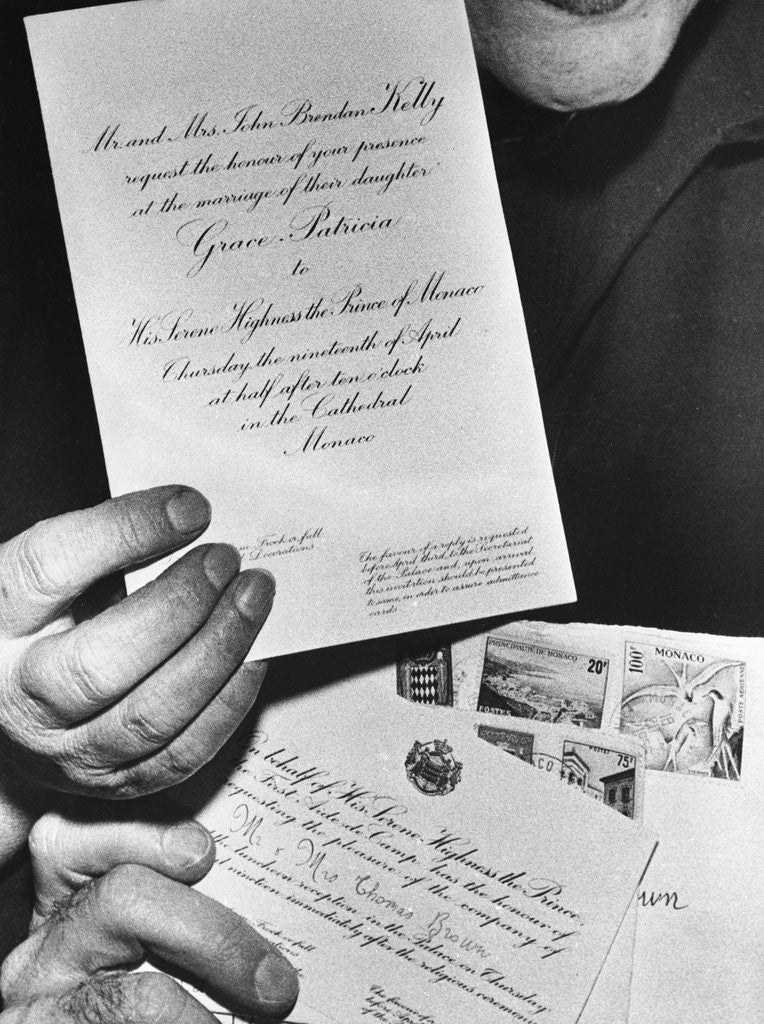 Mr. and Mrs. John Brendan Kelly
request the honour of your presence
at the marriage of their daughter
Grace-Patricia
to
His Serene Highness the Prince of Monaco
Thursday, the nineteenth of April
at half after ten o'clock
in the Cathedral
Monaco
Frock or full
Decorations
The favour of a reply is requested
before April third, to the Secretariat
of the Palace and, upon arrival
this invitation should be presented
to same, in order to assure admittance
cards
PRINCIPAUTÉ DE MONACO
20F
POSTES
100F
MONACO
POSTE AERIENNE
POSTES
75F
CO
behalf of His Serene Highness the Prince,
the First Aide-de-Camp has the honour of
requesting the pleasure of the company of
Mr & Mrs Thomas Brown
the luncheon reception in the Palace on Thursday
nineteen immediately after the religious ceremony
or full
The favour of
before April
of the
wn